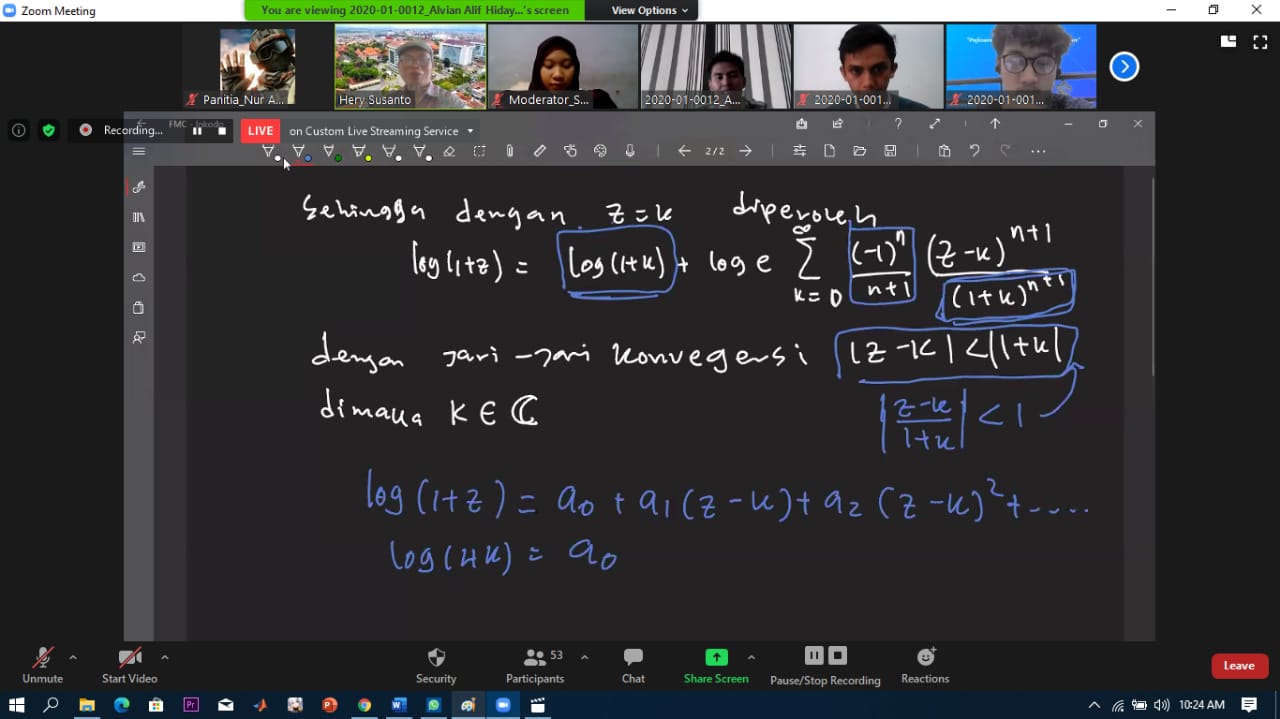 Zoom Meeting
You are viewing 2020-01-0012_Alvian Alif Hiday...'s screen
View Options
Panitia_Nur A...
Hery Susanto
Moderator_S...
2020-01-0012_A...
2020-01-001...
2020-01-001...
Recording...
FMC - Inkodo
LIVE
on Custom Live Streaming Service
2/2
Sehingga dengan z=k diperoleh
log(1+z) = log(1+k) + log e ∑_{k=0}^{∞} (-1)^n/(n+1) (z-k)^{n+1}/(1+k)^{n+1}
dengan jari-jari konvegensi |z-k| < |1+k|
dimana K ∈ ℂ
|(z-k)/(1+k)| < 1
log(1+z) = a₀ + a₁(z-k) + a₂(z-k)² + .....
log(1+k) = a₀
Unmute
Start Video
Security
53
Participants
Chat
Share Screen
Pause/Stop Recording
Reactions
Leave
10:24 AM